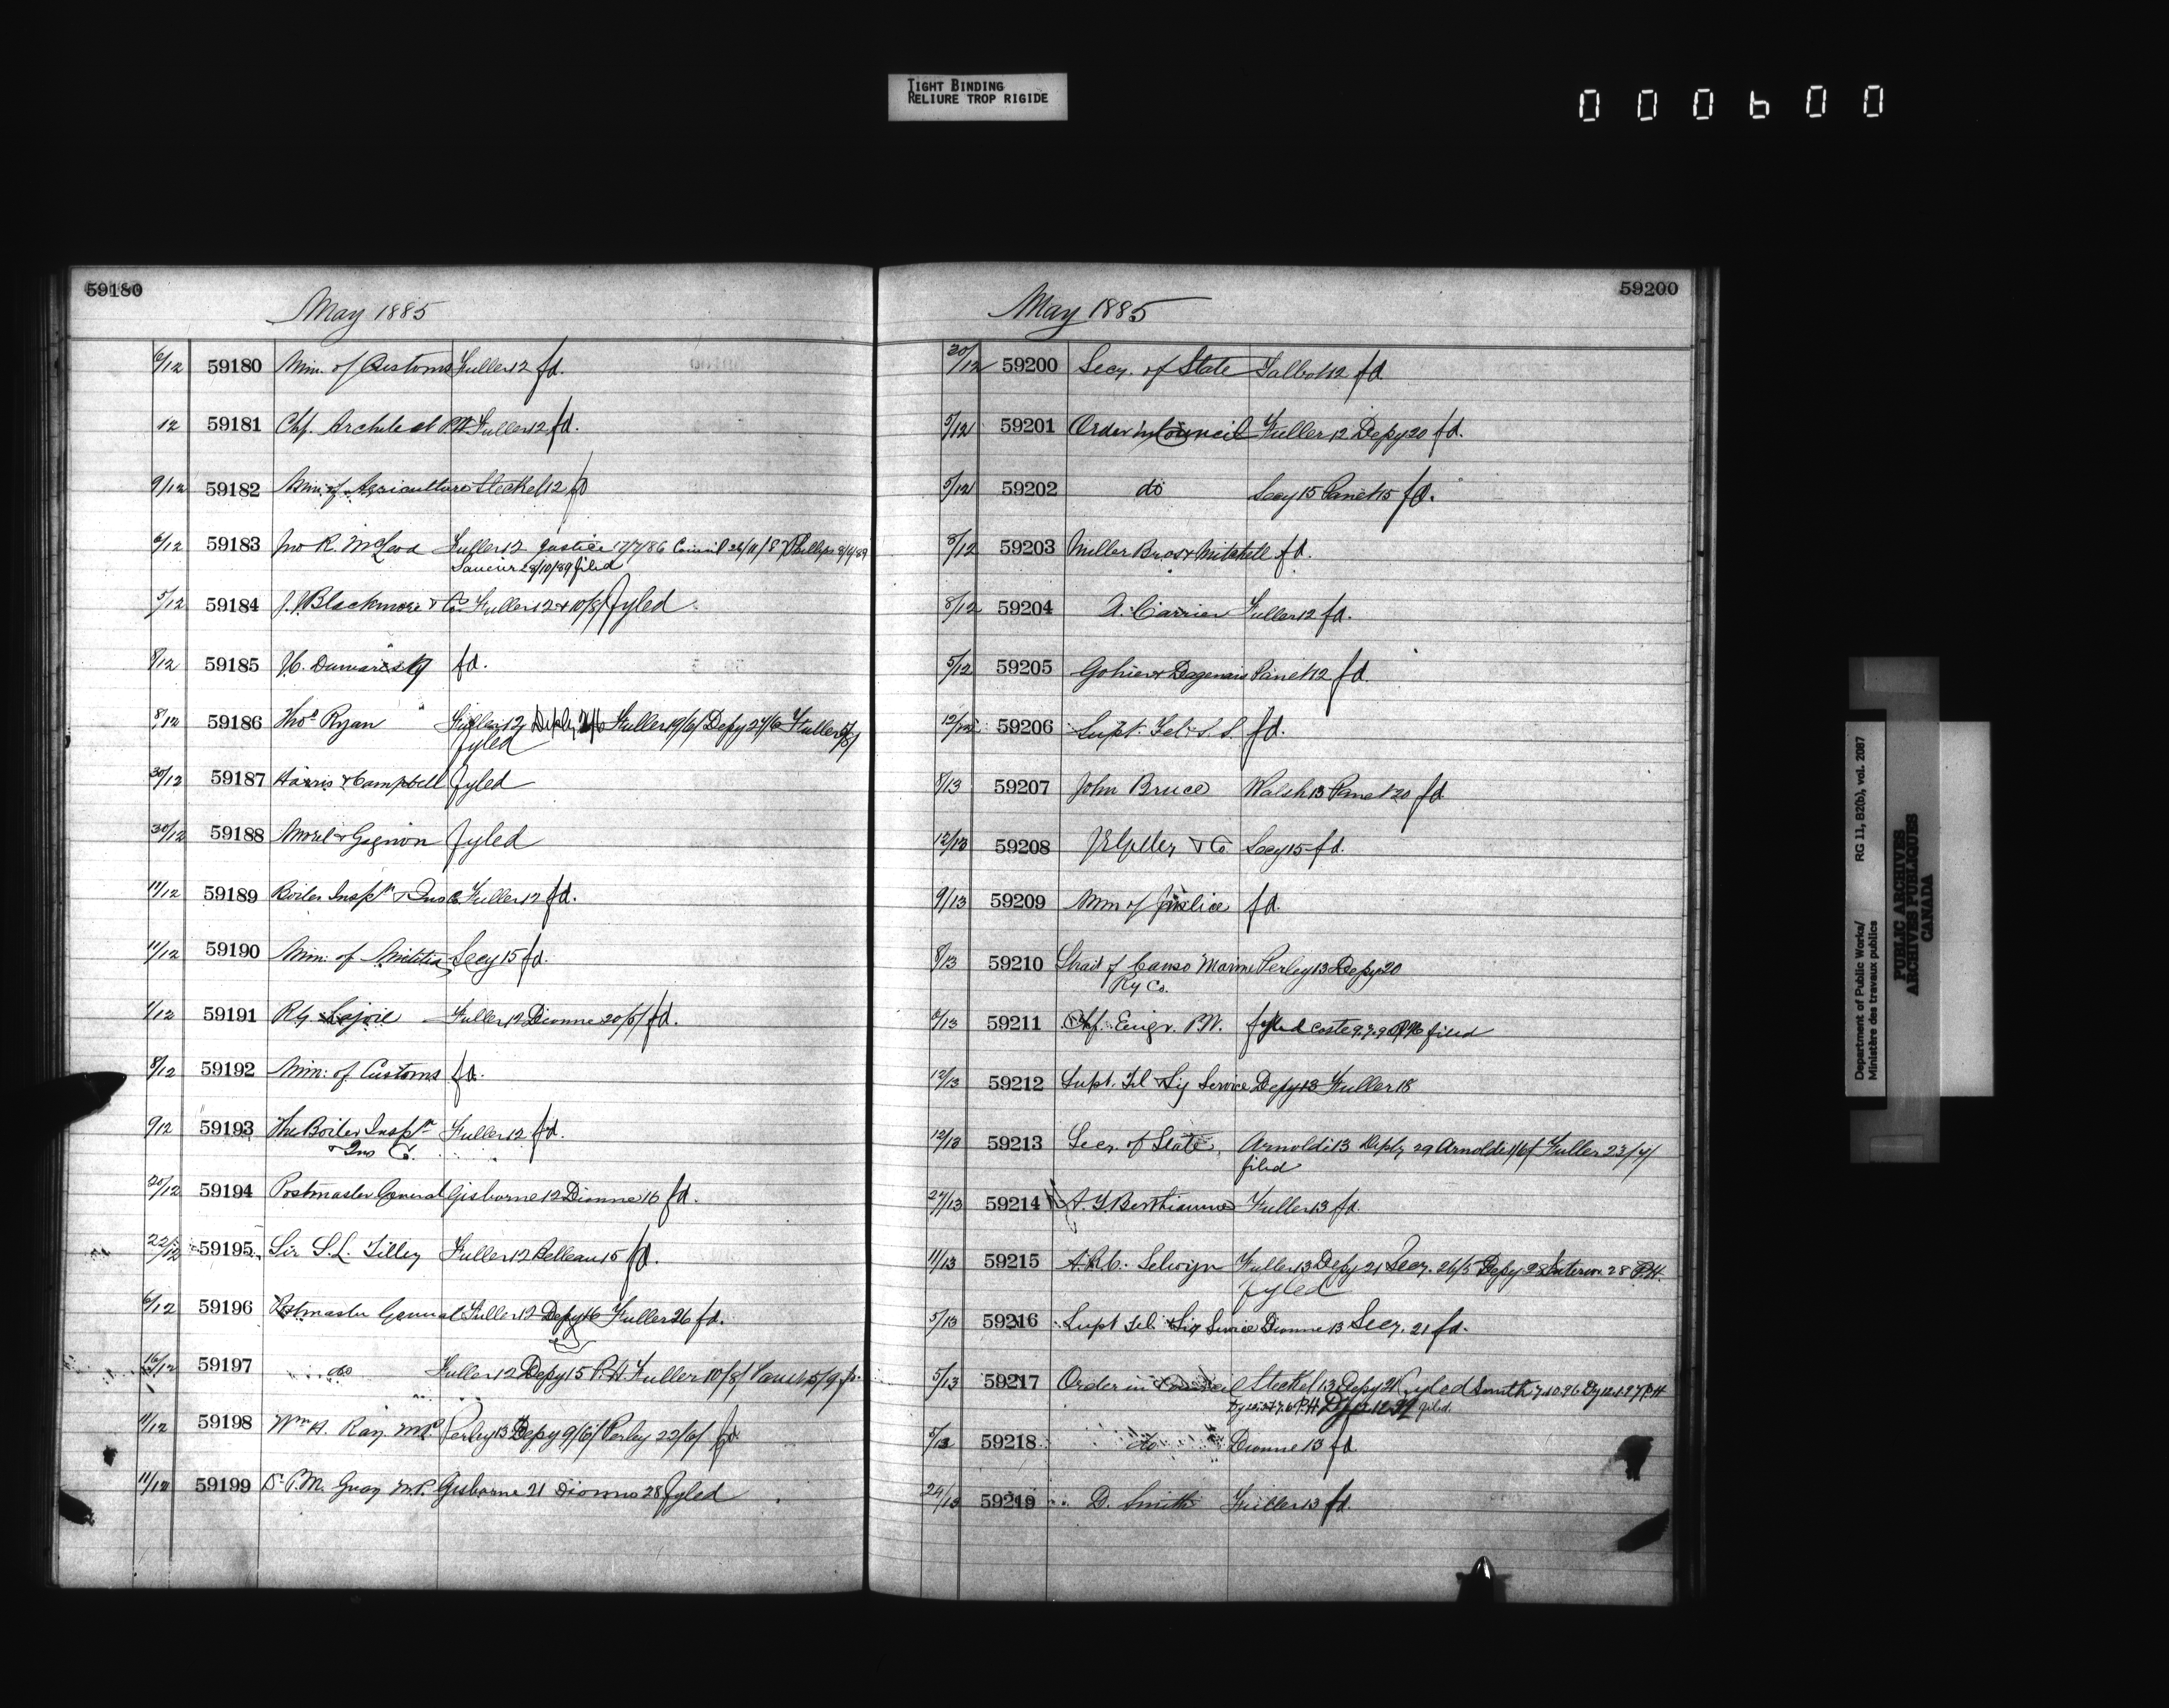 TIGHT BINDING
RELIURE TROP RIGIDE
000600
59180
May 1885
6/12 59180 Min. of Customs Fuller 12 fd.
12 59181 Chf. Architect P.W. Fuller 12 fd.
9/12 59182 Min. of Agriculture Steckel 12 fd
6/12 59183 Jno R. McLeod Fuller 12 Justice 17/7/86 Council 26/11/87 Phillips
28/10/89 filed
5/12 59184 J. Blackmore & Co. Fuller 12 & 10/8/ fyled
8/12 59185 fd.
8/12 59186 Thos Ryan Fuller 12 Fuller 19/6/ Depy 27/6 Fuller
fyled
30/12 59187 Harris & Campbell fyled
30/12 59188 Morel & Gagnon fyled
11/12 59189 Boiler Inspn & Ins Co Fuller 12 fd.
11/12 59190 Min. of Militia Secy 15 fd.
1/12 59191 Lajoie Fuller 12 Dionne 20/6/ fd.
8/12 59192 Min. of Customs fd.
9/12 59193 The Boiler Inspn Fuller 12 fd.
& Ins Co.
20/12 59194 Postmaster General Gisborne 12 Dionne 16 fd.
22/12 59195 Sir S.L. Tilley Fuller 12 Belleau 15 fd.
6/12 59196 Postmaster General Fuller 12 Depy 16 Fuller 26 fd.
16/12 59197 do Fuller 12 Depy 15 P.H. Fuller 10/8/
11/12 59198 Wm H. Ray MP Perley 13 Depy 9/6/ Perley 22/6/ fd
11/12 59199 Dr P.M. Guay M.P. Gisborne 21 Dionne 28 fyled
59200
May 1885
30/12 59200 Secy. of State Talbot 12 fd
5/12 59201 Order in Council Fuller 12 Depy 20 fd.
5/12 59202 do Secy 15 Panet 15 fd.
8/12 59203 Miller Bros & Mitchell fd.
8/12 59204 A. Carrier Fuller 12 fd.
5/12 59205 Gohier & Dagenais Panet 12 fd.
12/12 59206 Supt. Tel. S. S. fd.
8/13 59207 John Bruce Walsh 13 Panet 20 fd
12/13 59208 & Co. Secy 15 fd.
9/13 59209 Min of Justice fd.
8/13 59210 Strait of Canso Marine Perley 13 Depy 20
Ry Co.
59211 Chf. Engr. P.W. fyled Coste filed
12/13 59212 Supt. Tel & Sig Service Depy 13 Fuller 18
12/13 59213 Secy. of State, Arnoldi 13 Depty 29 Arnoldi 1/6/ Fuller 23/7/
filed
27/13 59214 Berthiaume Fuller 13 fd.
11/13 59215 A.R.C. Selwyn Fuller 13 Depy 21 Secy. 26/5 Depy 28 Interior 28 P.H.
fyled
5/13 59216 Supt Tel. & Sig Service Dionne 13 Secy. 21 fd.
5/13 59217 Order in Council Steckel 13 Depy 21 fyled Smith 7.10.96 Dy 12.1.97 P.H
filed.
5/13 59218 do Dionne 13 fd
29/13 59219 D. Smith Fuller 13 fd.
Department of Public Works/ RG 11, B2(b), vol. 2087
Ministère des travaux publics
PUBLIC ARCHIVES
ARCHIVES PUBLIQUES
CANADA